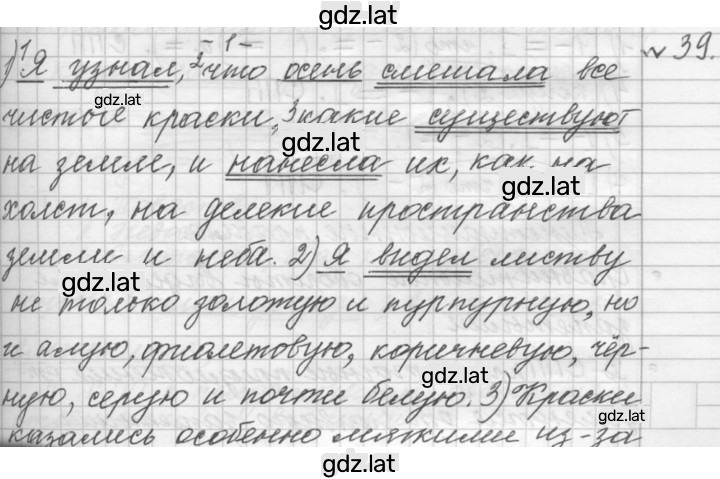 gdz.lat
- 1 -
№ 39.
1) ¹Я узнал, ²что осень смешала все
gdz.lat
чистые краски, ³какие существуют
на земле, и нанесла их, как на
gdz.lat
холст, на делекие пространства
земли и неба. 2) Я видел листву
gdz.lat
не только золотую и пурпурную, но
и алую, фиолетовую, коричневую, чёр-
gdz.lat
ную, серую и почти белую. 3) Краски
gdz.lat
казались особенно мягкими из-за
gdz.lat